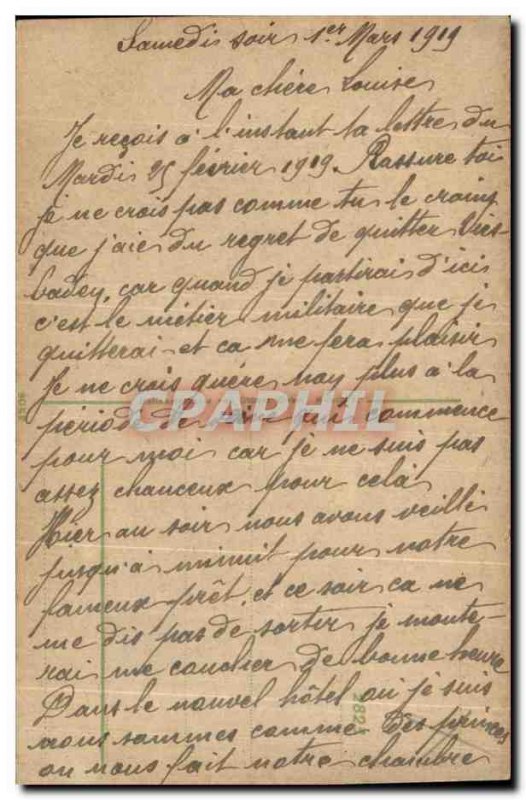 Samedi soir 1er Mars 1919
Ma chère Louise
Je reçois à l'instant ta lettre du
Mardi 25 février 1919. Rassure toi
je ne crois pas comme tu le crains
que j'aie du regret de quitter Vies-
baden, car quand je partirais d'ici
c'est le métier militaire que je
quitterai et ca me fera plaisir
Je ne crois guère non plus à la
période de qui commence
pour moi car je ne suis pas
assez chanceux pour celà
Hier au soir nous avons veillé
jusqu'à minuit pour notre
fameux prêt, et ce soir ca ne
me dis pas de sortir je monte-
rai me coucher de bonne heure
Dans le nouvel hôtel où je suis
nous sommes comme des princes
on nous fait notre chambre
CPAPHIL
282